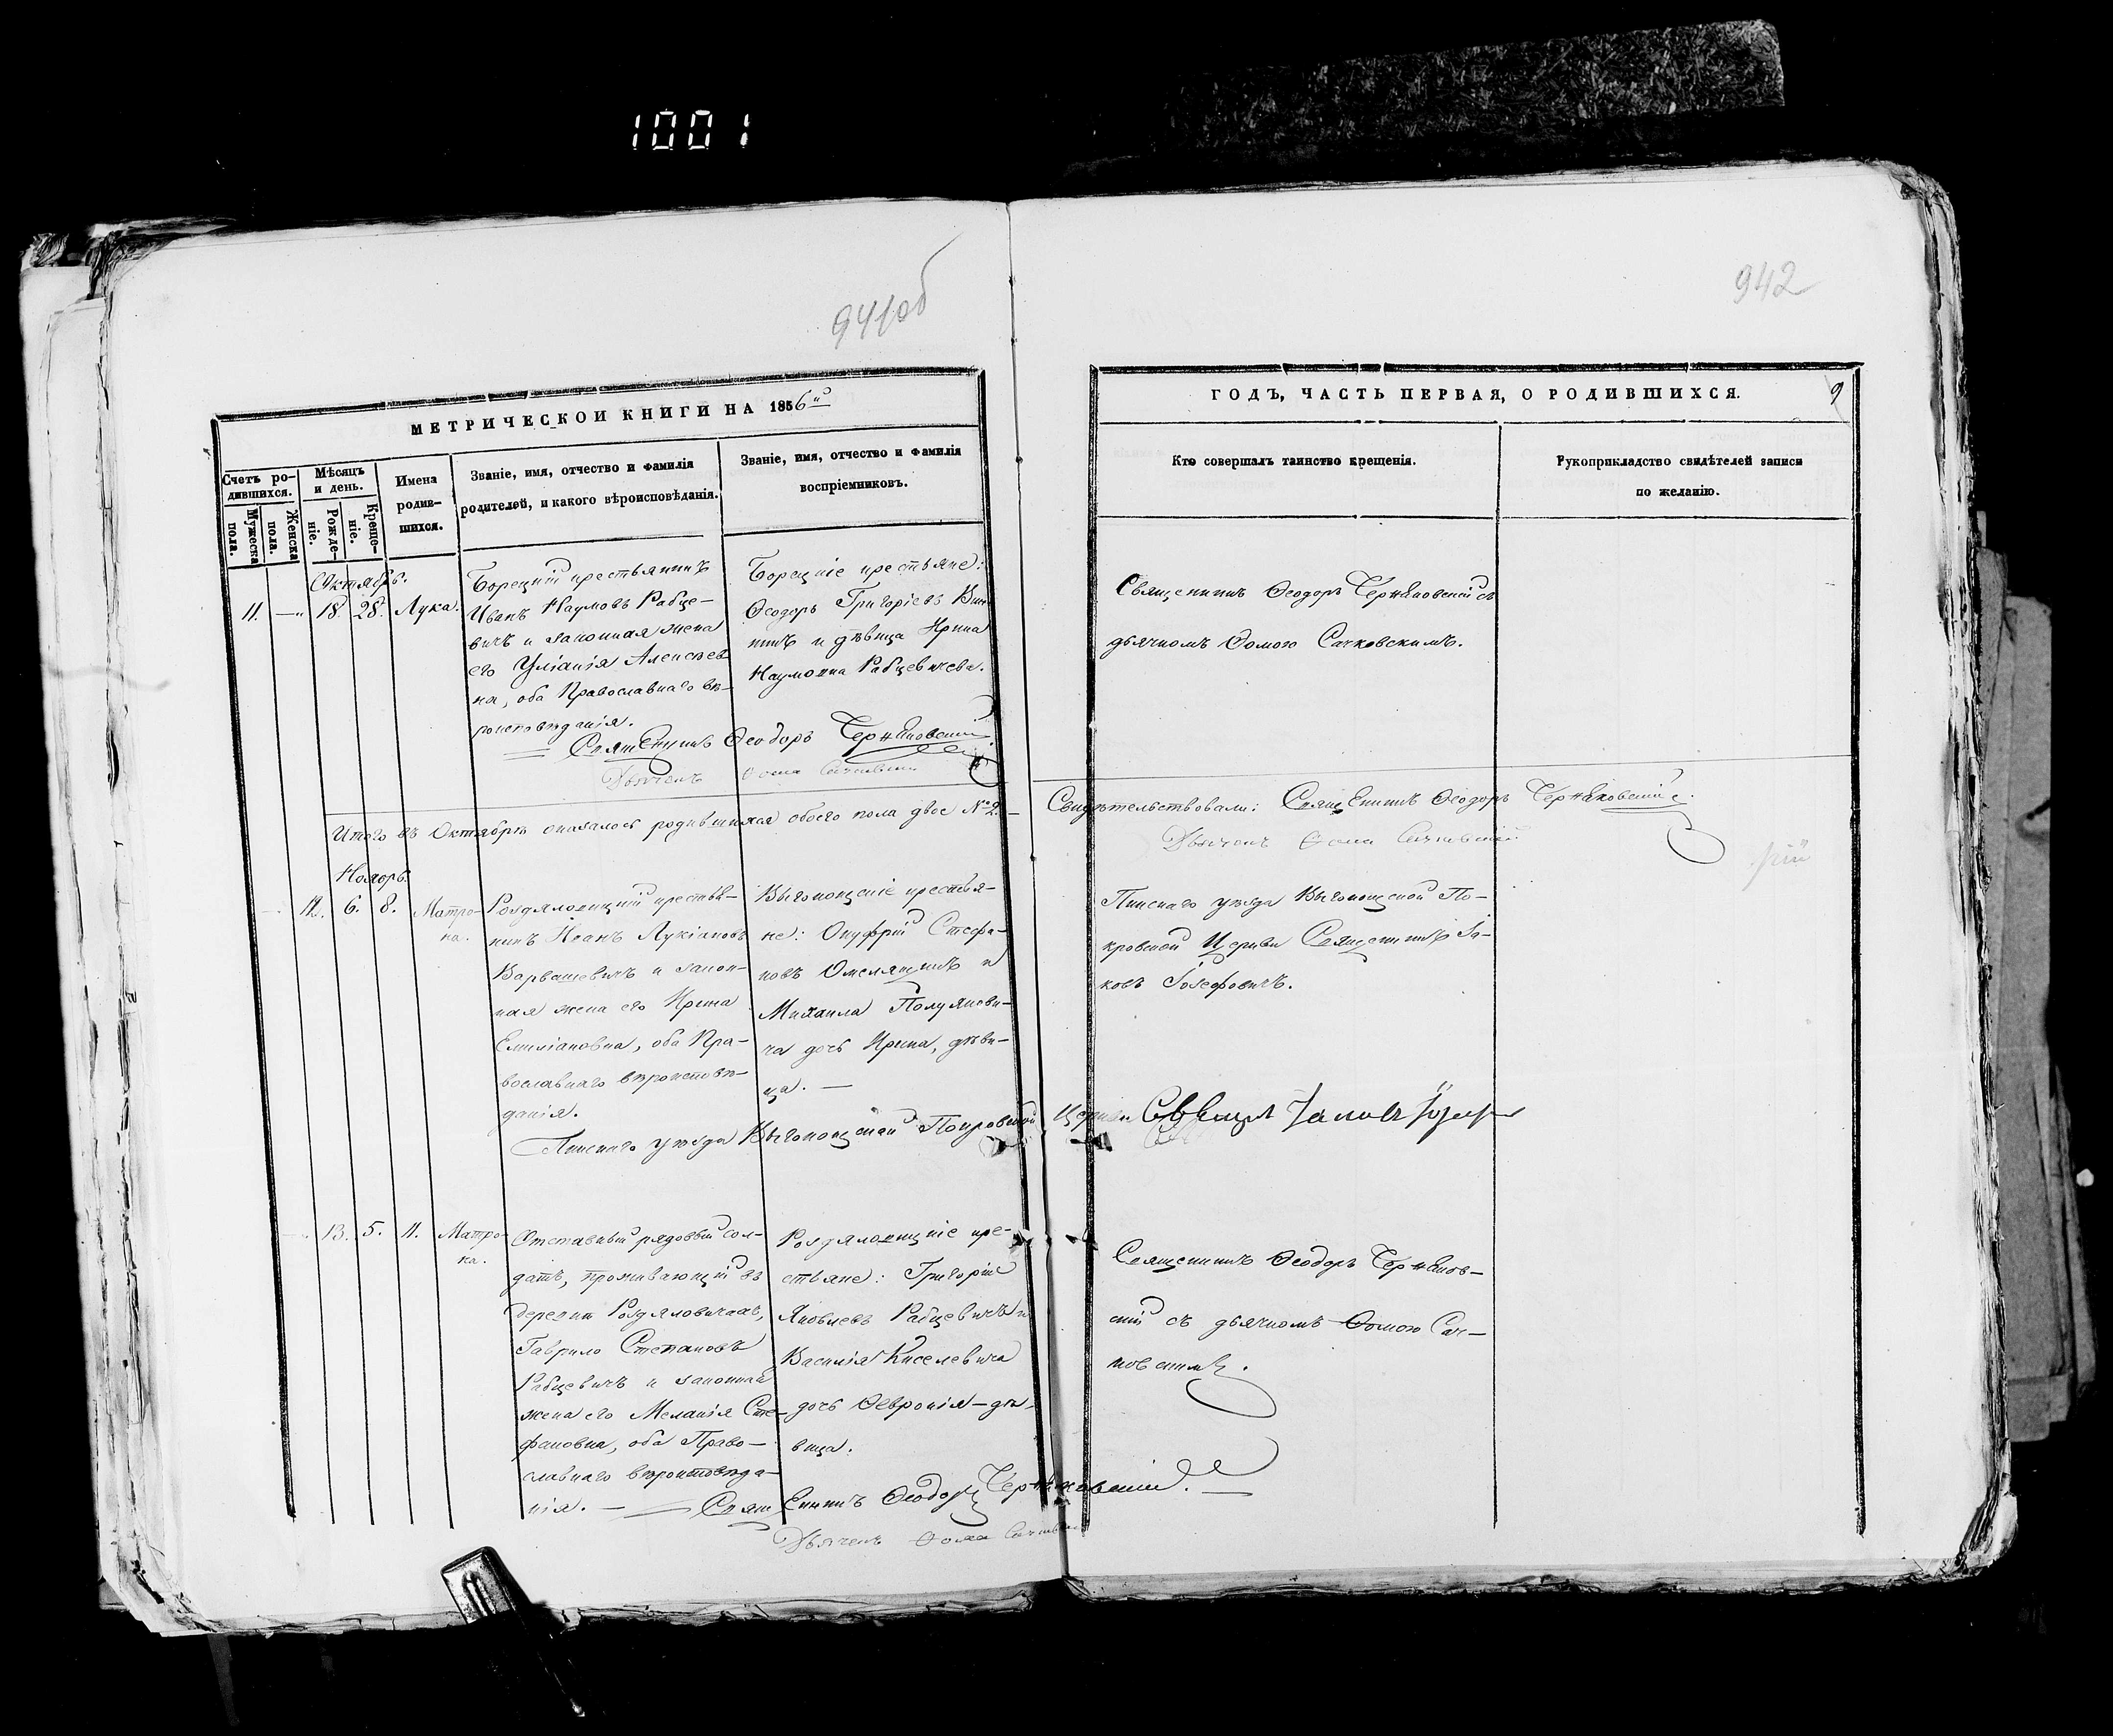 1001
941об
942
МЕТРИЧЕСКОЙ КНИГИ НА 1856й
Счетъ ро-
дившихся.
Мужеска
пола.
Женска
пола.
Мѣсяцъ
и день.
Рожде-
ніе.
Креще-
ніе.
Имена
родив-
шихся.
Званіе, имя, отчество и фамилія
родителей, и какого вѣроисповѣданія.
Званіе, имя, отчество и фамилія
воспріемниковъ.
ГОДЪ, ЧАСТЬ ПЕРВАЯ, О РОДИВШИХСЯ.
9
Кто совершалъ таинство крещенія.
Рукоприкладство свидѣтелей записи
по желанію.
Октябрь.
11. — 18. 28. Лука.
Борецкій крестьянинъ
Иванъ Наумовъ Рабце-
вичъ и законная жена
его Уліанія Алексѣев-
на, оба Православнаго вѣ-
роисповѣданія.
Борецкіе крестьяне:
Ѳеодоръ Григоріевъ
и дѣвица Ирина
Наумовна Рабцевичева.
Священникъ Ѳеодоръ Черняковскій съ
дьячкомъ Ѳомою Сачковскимъ.
Священникъ Ѳеодоръ Черняковскій
Дьячекъ Ѳома Сачковскій
Итого въ Октябрѣ оказалось родившихся обоего пола двое №2.
Свидѣтельствовали: Священникъ Ѳеодоръ Черняковскій
Дьячекъ Ѳома Сачковскій
Ноябрь.
12. 6. 8. Матро-
на.
Роздяловицкій крестья-
нинъ Иванъ Лукіановъ
Варвашевичъ и закон-
ная жена его Ирина
Емиліановна, оба Пра-
вославнаго вѣроисповѣ-
данія.
Выгонощскіе крестья-
не: Онуфрій Стефа-
новъ Омелянчикъ и
Михаила Полуянови-
ча дочь Ирина, дѣви-
ца. —
Пинскаго уѣзда Выгонощской По-
кровской Церкви Священникъ Іа-
ковъ Іозефовичъ.
Пинскаго уѣзда Выгонощской Покровской Церкви
13. 5. 11. Матро-
на.
Отставный рядовый сол-
датъ, проживающій въ
деревни Роздяловичахъ,
Гаврило Степановъ
Рабцевичъ и законная
жена его Меланія Сте-
фановна, оба Право-
славнаго вѣроисповѣда-
нія. —
Роздяловицкіе кре-
стьяне: Григорій
Яковлевъ Рабцевичъ и
Василія Киселевича
дочь Ѳевронія - дѣ-
вица.
Священникъ Ѳеодоръ Черняков-
скій съ дьячкомъ Ѳомою Сач-
ковскимъ.
Священникъ Ѳеодоръ Черняковскій.
Дьячекъ Ѳома Сачковскій